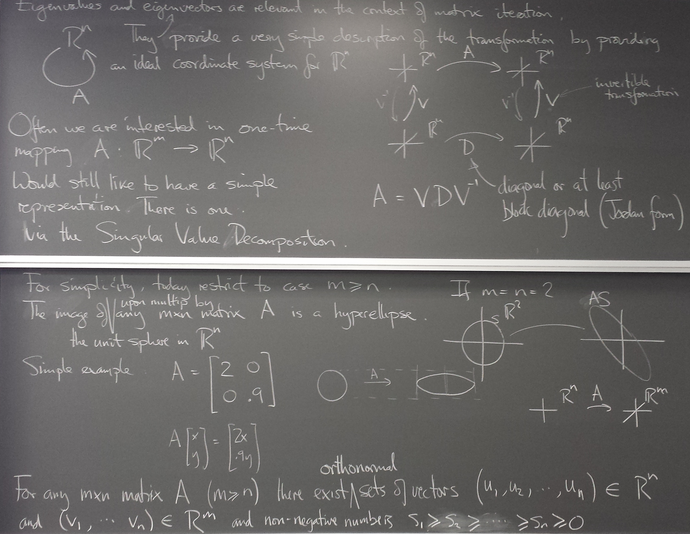 Eigenvalues and eigenvectors are relevant in the context of matrix iteration.
They provide a very simple description of the transformation by providing
an ideal coordinate system for ℝⁿ
ℝⁿ
A
ℝⁿ A ℝⁿ
V⁻¹ V V⁻¹ V
invertible
transformation
ℝⁿ D ℝⁿ
Often we are interested in one-time
mapping A : ℝᵐ → ℝⁿ
Would still like to have a simple
representation. There is one.
via the Singular Value Decomposition.
A = VDV⁻¹
diagonal or at least
block diagonal (Jordan form)
For simplicity, today restrict to case m ≥ n.
upon multip by
The image of any mxn matrix A is a hyperellipse.
the unit sphere in ℝⁿ
If m = n = 2
S ℝ² AS
Simple example A = [2 0
0 .9]
A
ℝⁿ A ℝᵐ
A [x y] = [2x .9y]
orthonormal
For any mxn matrix A (m ≥ n) there exist sets of vectors (u₁, u₂, ..., uₙ) ∈ ℝⁿ
and (v₁, ... vₙ) ∈ ℝᵐ and non-negative numbers s₁ ≥ s₂ ≥ ..... ≥ sₙ ≥ 0